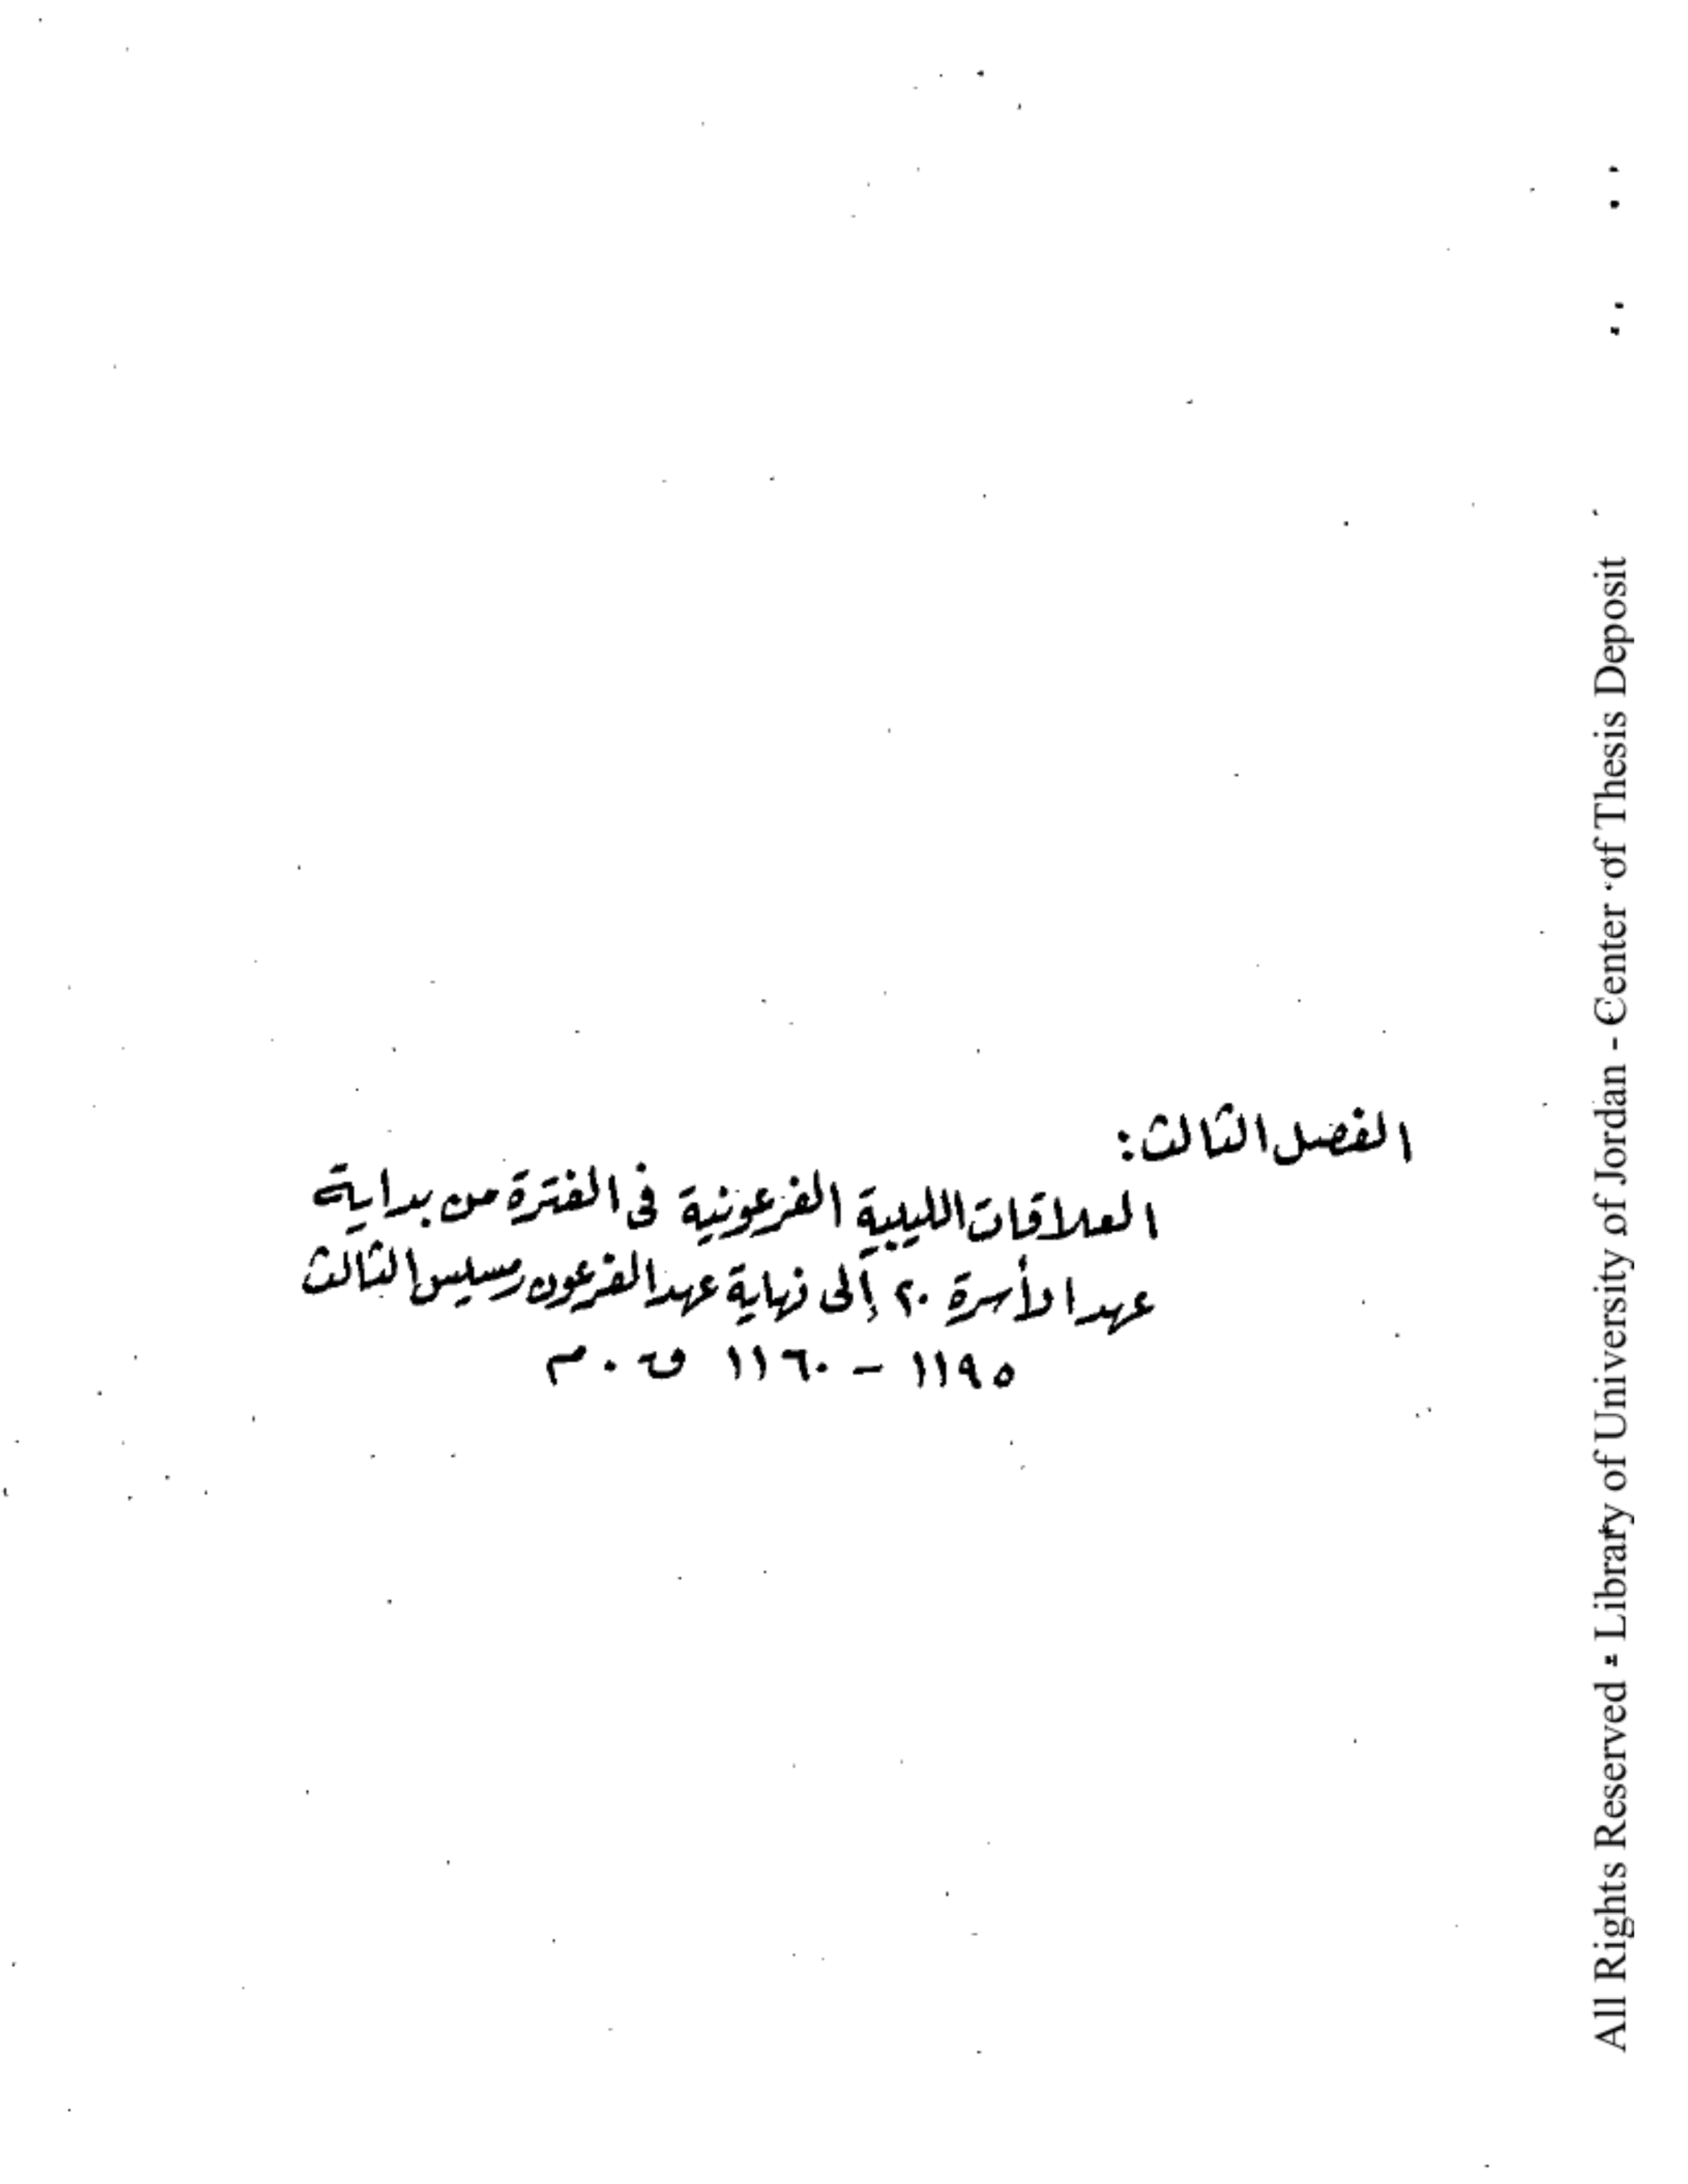 الفصل الثالث:
العلاقات الليبية الفرعونية فى الفترة من بداية
عهد الأسرة ٢٠ إلى نهاية عهد الفرعون رمسيس الثالث
١١٩٥ – ١١٦٠ ق . م
All Rights Reserved - Library of University of Jordan - Center of Thesis Deposit